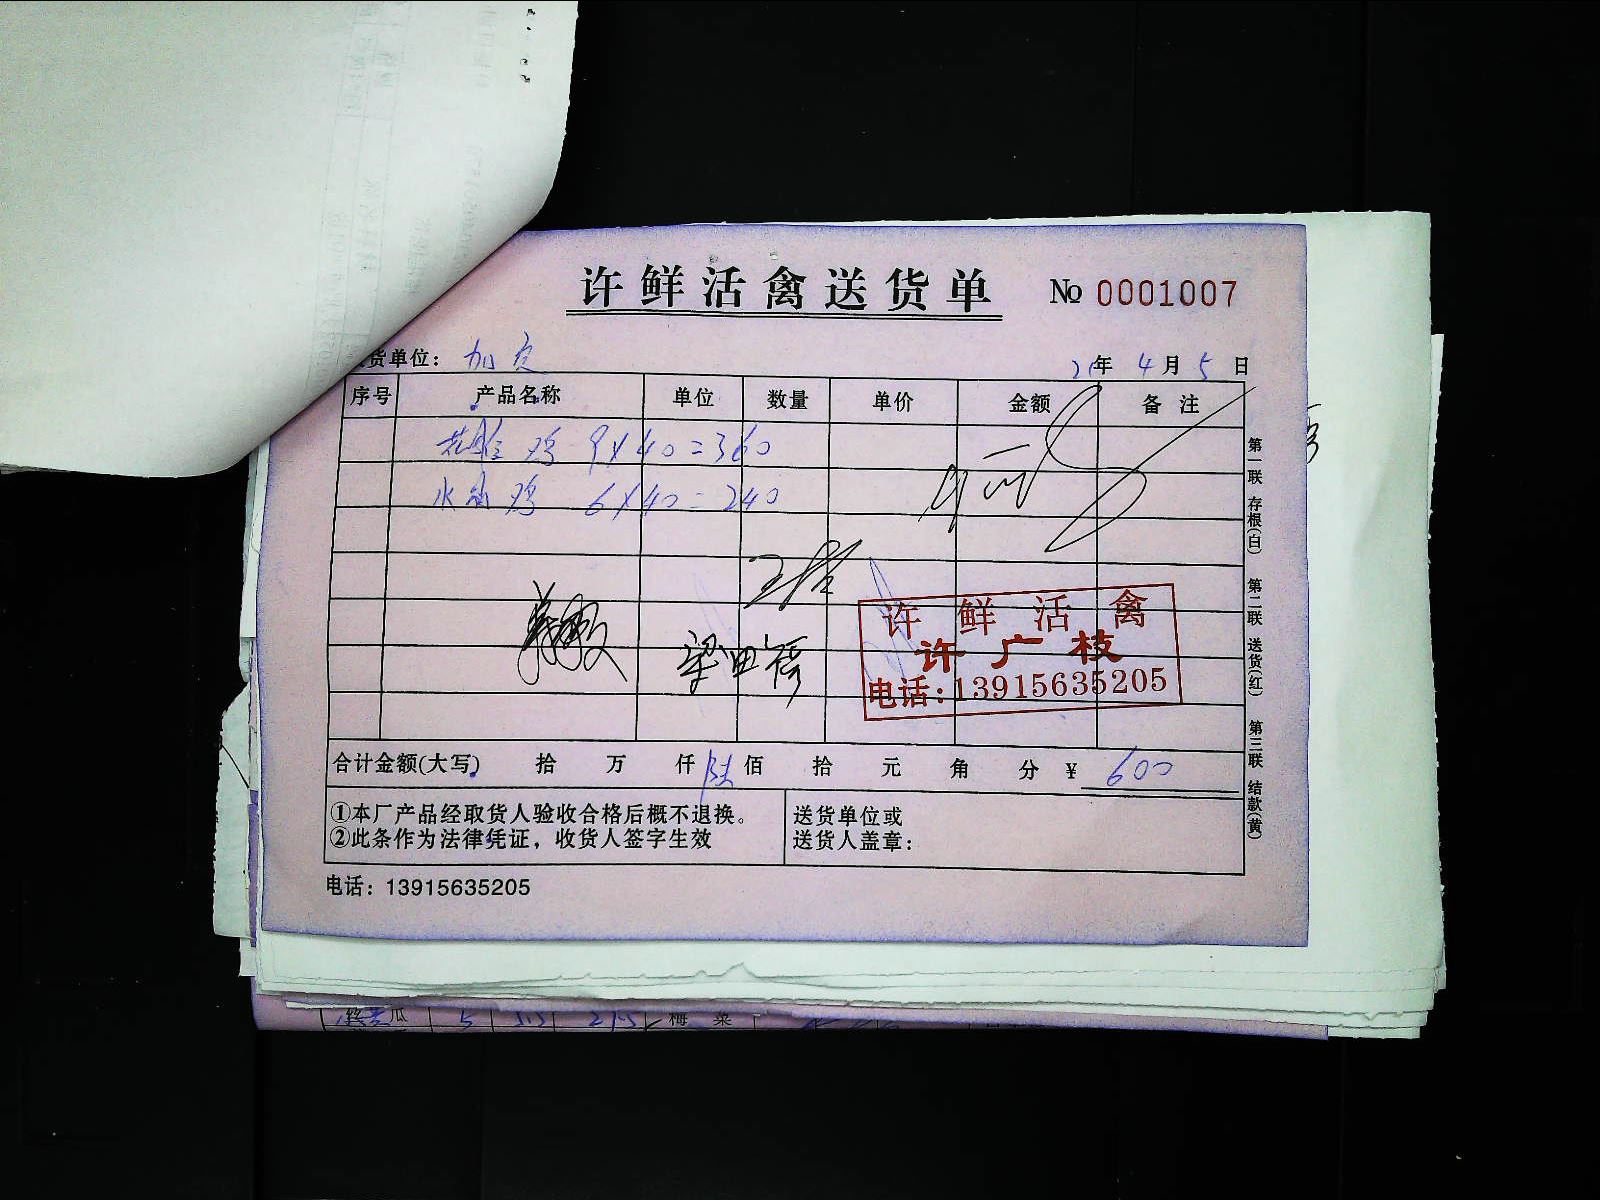 许鲜活禽送货单 № 0001007
货单位：加贝 21年4月5日
序号 产品名称 单位 数量 单价 金额 备注
鸡 9×40=360
水 鸡 6×40=240
许鲜活禽
许广枝
电话：13915635205
合计金额(大写) 拾 万 仟 陆佰 拾 元 角 分 ¥ 600
①本厂产品经取货人验收合格后概不退换。
②此条作为法律凭证，收货人签字生效
送货单位或
送货人盖章：
电话：13915635205
第一联 存根(白)
第二联 送货(红)
第三联 结款(黄)
瓜 5 梅 菜